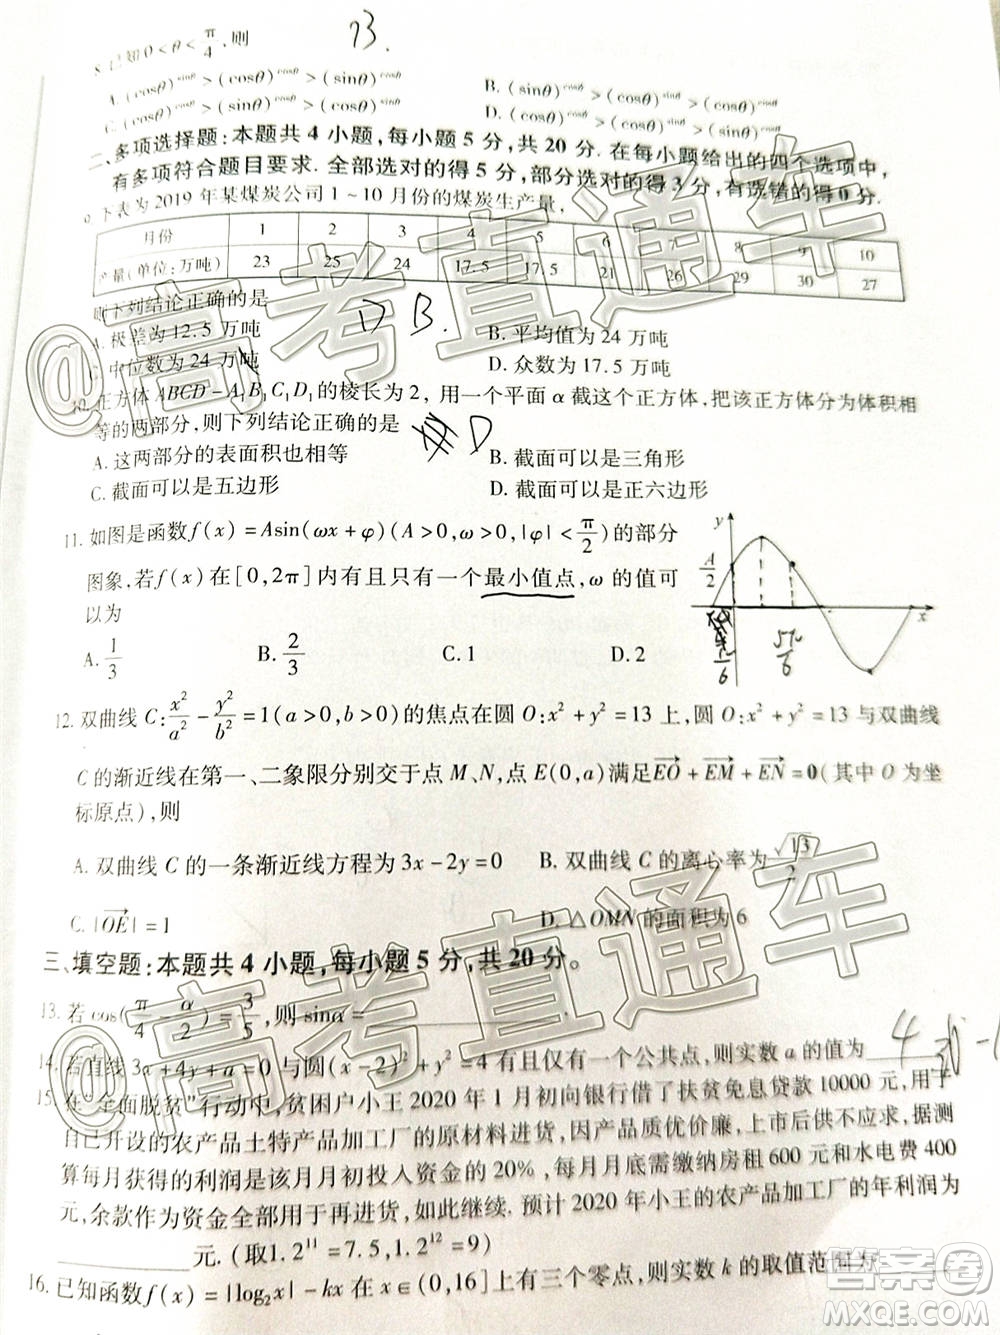 8. 已知 0<θ<π/4, 则
B.
A. (cosθ)^sinθ > (cosθ)^cosθ > (sinθ)^cosθ
B. (sinθ)^cosθ > (cosθ)^cosθ > (cosθ)^sinθ
二、多项选择题: 本题共 4 小题, 每小题 5 分, 共 20 分. 在每小题给出的四个选项中
有多项符合题目要求. 全部选对的得 5 分, 部分选对的得 3 分, 有选错的得 0 分.
9. 下表为 2019 年某煤炭公司 1~10 月份的煤炭生产量,
月份 1 2 3 4 5 6 7 8 9 10
产量(单位:万吨) 23 25 24 17.5 17.5 21 26 29 30 27
则下列结论正确的是
D B.
A. 极差为 12.5 万吨
B. 平均值为 24 万吨
C. 中位数为 24 万吨
D. 众数为 17.5 万吨
10. 正方体 ABCD-A₁B₁C₁D₁的棱长为 2, 用一个平面 α 截这个正方体, 把该正方体分为体积相
等的两部分, 则下列结论正确的是
D
A. 这两部分的表面积也相等
B. 截面可以是三角形
C. 截面可以是五边形
D. 截面可以是正六边形
11. 如图是函数 f(x)=Asin(ωx+φ)(A>0,ω>0,|φ|<π/2)的部分
图象, 若 f(x)在[0,2π]内有且只有一个最小值点, ω 的值可
以为
y
A/2
x
π/6
5π/6
A. 1/3
B. 2/3
C. 1
D. 2
12. 双曲线 C: x²/a² - y²/b² = 1(a>0,b>0)的焦点在圆 O:x²+y²=13 上, 圆 O:x²+y²=13 与双曲线
C 的渐近线在第一、二象限分别交于点 M、N, 点 E(0,a)满足EO+EM+EN=0(其中 O 为坐
标原点), 则
A. 双曲线 C 的一条渐近线方程为 3x-2y=0
B. 双曲线 C 的离心率为 √13/2
C. |OE|=1
D. △OMN 的面积为 6
三、填空题: 本题共 4 小题, 每小题 5 分, 共 20 分。
13. 若 cos(π/4 - α/2) = 3/5, 则 sinα=
14. 若直线 3x+4y+a=0 与圆(x-2)²+y²=4 有且仅有一个公共点, 则实数 a 的值为 4
15. 在“全面脱贫”行动中, 贫困户小王 2020 年 1 月初向银行借了扶贫免息贷款 10000 元, 用于
自己开设的农产品土特产品加工厂的原材料进货, 因产品质优价廉, 上市后供不应求, 据测
算每月获得的利润是该月月初投入资金的 20%, 每月月底需缴纳房租 600 元和水电费 400
元, 余款作为资金全部用于再进货, 如此继续. 预计 2020 年小王的农产品加工厂的年利润为
元. (取1.2¹¹=7.5, 1.2¹²=9)
16. 已知函数 f(x)=|log₂x|-kx 在 x∈(0,16]上有三个零点, 则实数 k 的取值范围为
@高考直通车
@高考直通车
答案圈
MXQE.COM